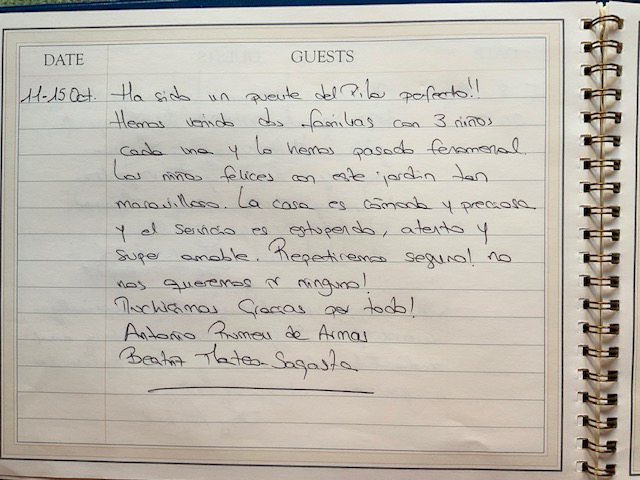 DATE GUESTS
11-15 Oct. Ha sido un puente del Pilar perfecto!!
Hemos venido dos familias con 3 niños
cada una y lo hemos pasado fenomenal.
Los niños felices con este jardín tan
maravilloso. La casa es cómoda y preciosa
y el servicio es estupendo, atento y
super amable. Repetiremos seguro! no
nos queremos ir ninguno!
Muchísimas Gracias por todo!
Antonio de Armas
Beatriz Mateo-Sagasta